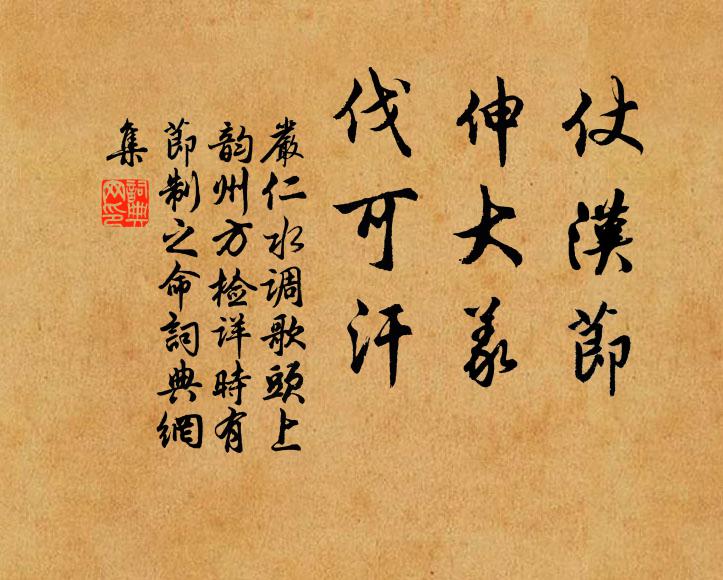 仗漢節
伸大義
伐可汗
嚴仁水调歌頭上
韵州方检详時有
節制之命詞典網
集
詞典
网印